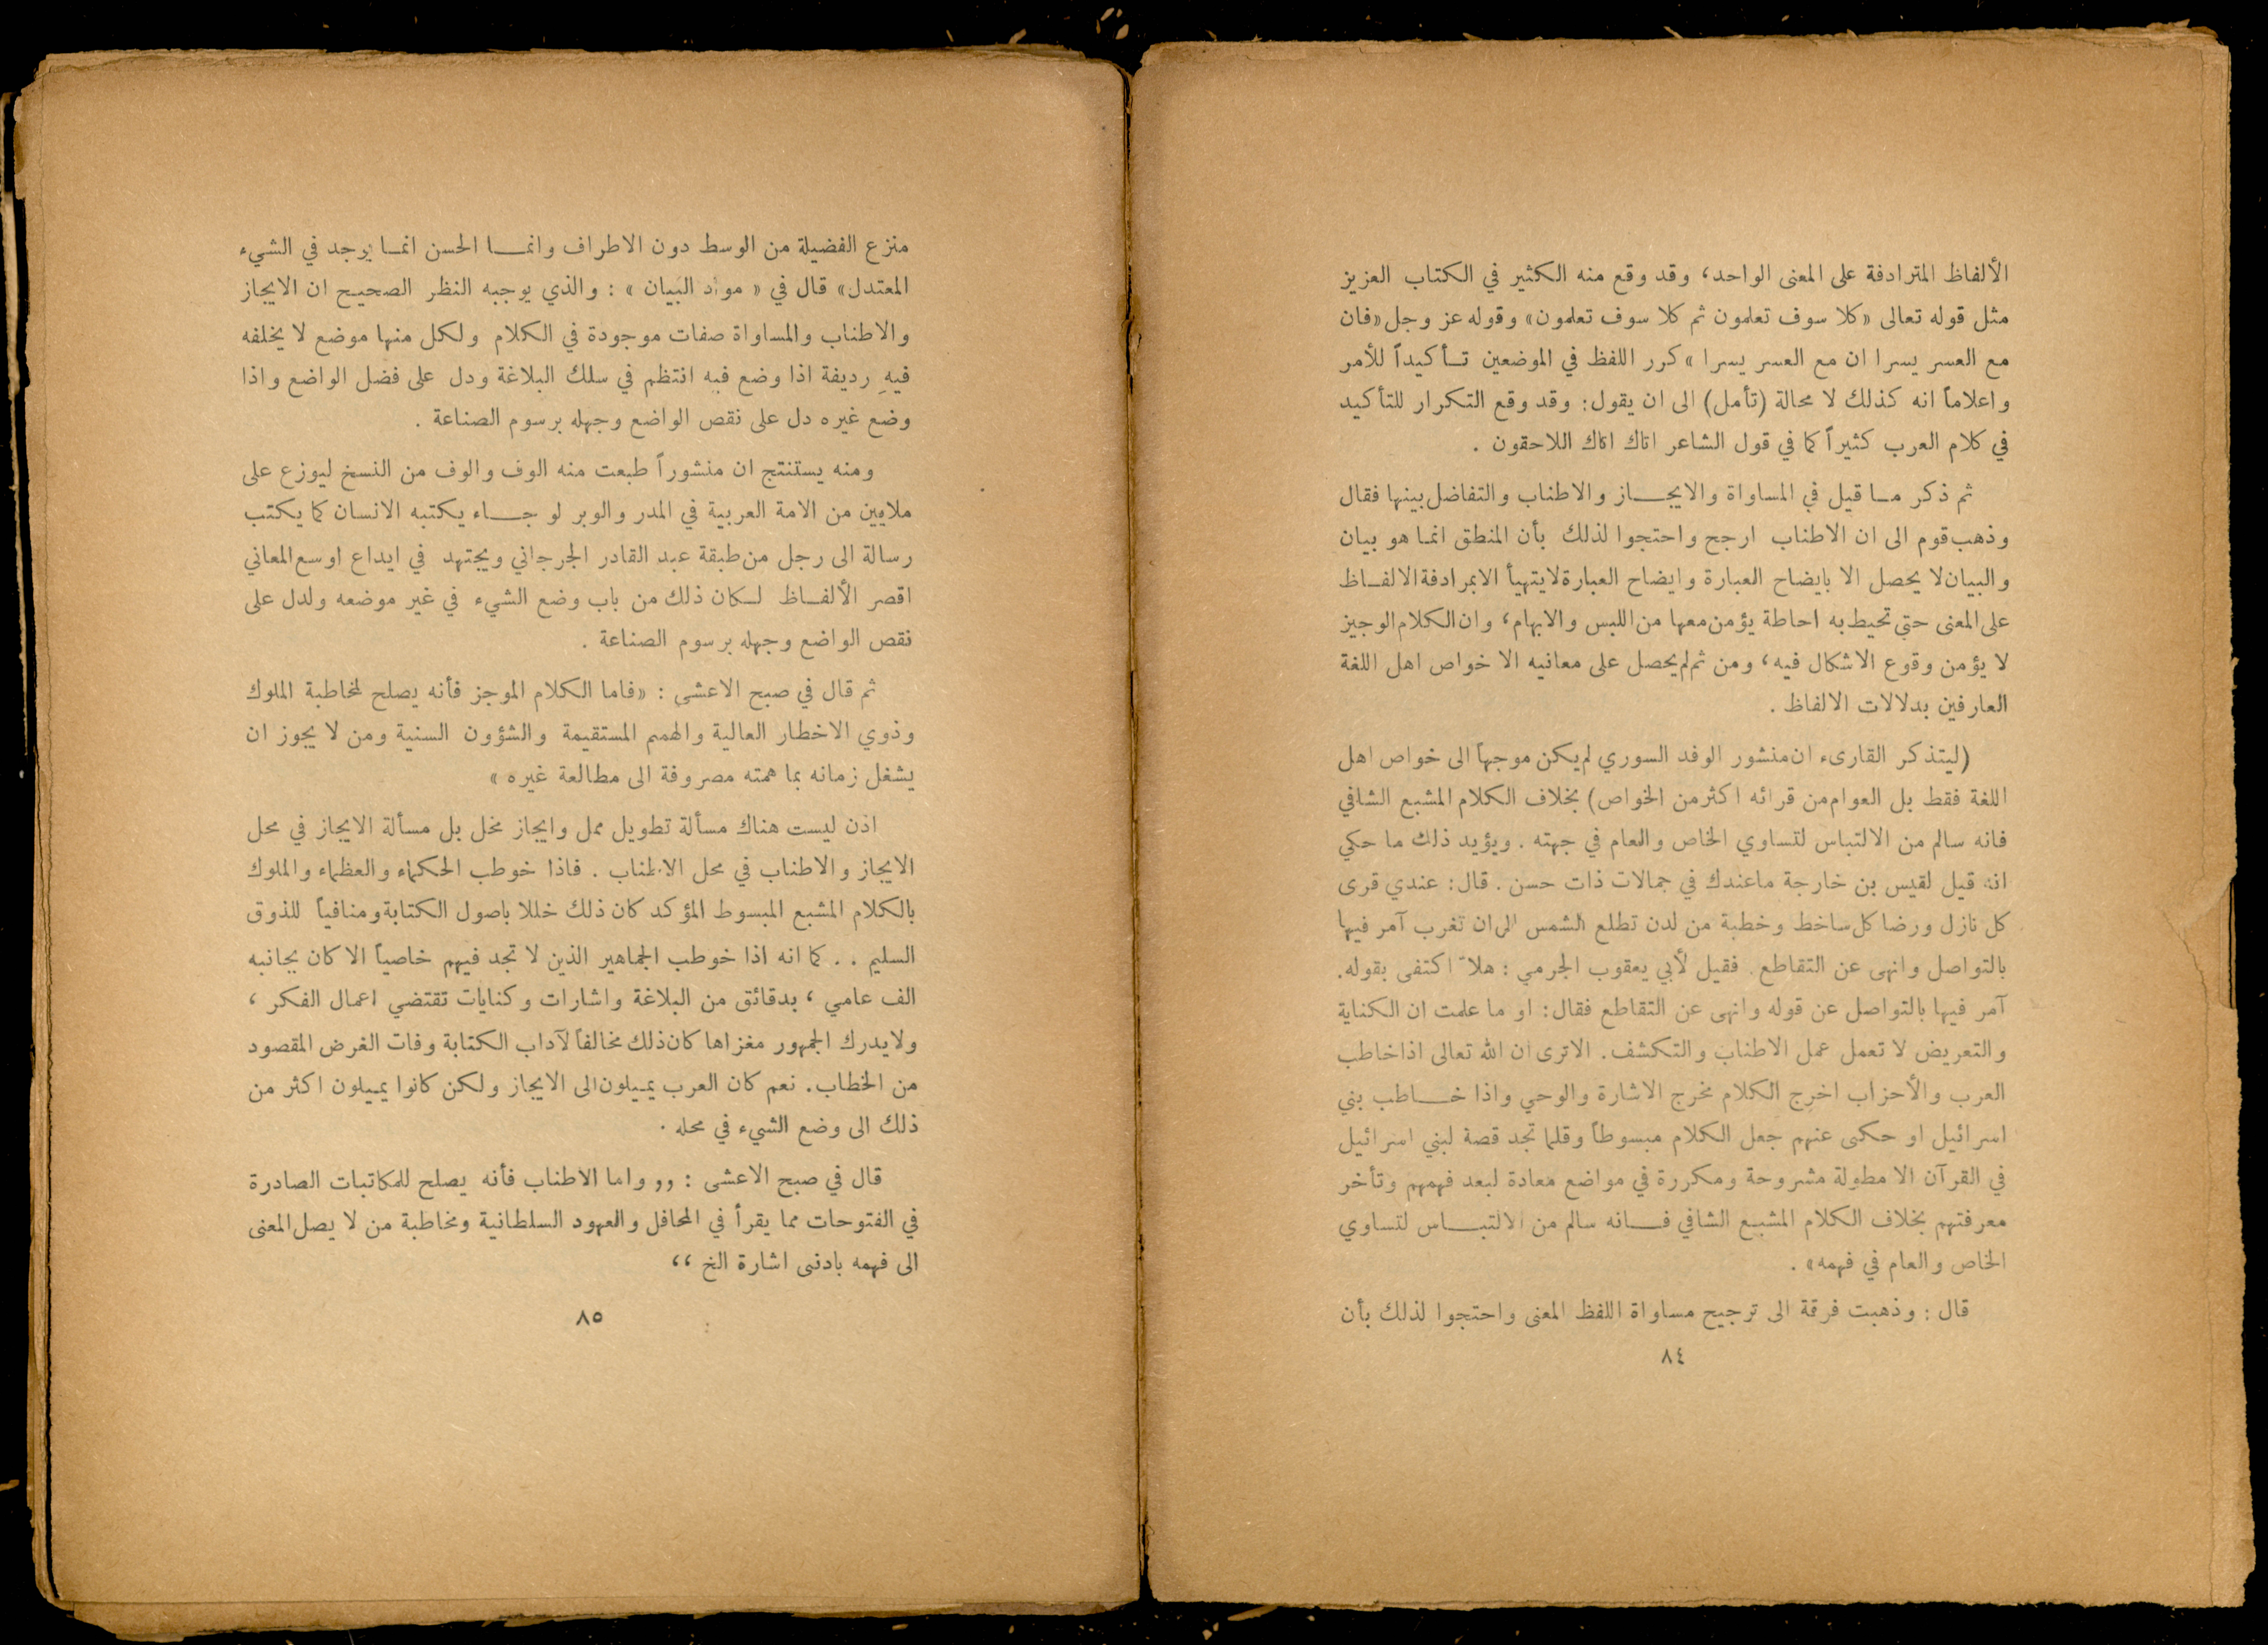 الألفاظ المترادفة على المعنى الواحد، وقد وقع منه الكثير في الكتاب العزيز
مثل قوله تعالى «كلا سوف تعلمون ثم كلا سوف تعلمون» وقوله عز وجل «فان
مع العسر يسرا ان مع العسر يسرا » كرر اللفظ في الموضعين تأكيداً للأمر
واعلاماً انه كذلك لا محالة (تأمل) الى ان يقول: وقد وقع التكرار للتأكيد
في كلام العرب كثيراً كما في قول الشاعر اتاك اتاك اللاحقون .
ثم ذكر ما قيل في المساواة والايجاز والاطناب والتفاضل بينها فقال
وذهب قوم الى ان الاطناب ارجح واحتجوا لذلك بأن المنطق انما هو بيان
والبيان لا يحصل الا بايضاح العبارة وايضاح العبارة لا يتهيأ الا بمرادفة الالفاظ
على المعنى حتى تحيط به احاطة يؤمن معها من اللبس والابهام، وان الكلام الوجيز
لا يؤمن وقوع الاشكال فيه، ومن ثم لم يحصل على معانيه الا خواص اهل اللغة
العارفين بدلالات الالفاظ .
(ليتذكر القارىء ان منشور الوفد السوري لم يكن موجهاً الى خواص اهل
اللغة فقط بل العوام من قرائه اكثر من الخواص) بخلاف الكلام المشبع الشافي
فانه سالم من الالتباس لتساوي الخاص والعام في جهته . ويؤيد ذلك ما حكي
انه قيل لقيس بن خارجة ما عندك في جمالات ذات حسن . قال: عندي قرى
كل نازل ورضا كل ساخط وخطبة من لدن تطلع الشمس الى ان تغرب آمر فيها
بالتواصل وانهى عن التقاطع . فقيل لأبي يعقوب الجرمي : هلاّ اكتفى بقوله.
آمر فيها بالتواصل عن قوله وانهى عن التقاطع فقال: او ما علمت ان الكناية
والتعريض لا تعمل عمل الاطناب والتكشف. الا ترى ان الله تعالى اذا خاطب
العرب والأحزاب اخرج الكلام مخرج الاشارة والوحي واذا خاطب بني
اسرائيل او حكى عنهم جعل الكلام مبسوطاً وقلما تجد قصة لبني اسرائيل
في القرآن الا مطولة مشروحة ومكررة في مواضع معادة لبعد فهمهم وتأخر
معرفتهم بخلاف الكلام المشبع الشافي فانه سالم من الالتباس لتساوي
الخاص والعام في فهمه» .
قال : وذهبت فرقة الى ترجيح مساواة اللفظ المعنى واحتجوا لذلك بأن
٨٤
منزع الفضيلة من الوسط دون الاطراف وانما الحسن انما يوجد في الشيء
المعتدل» قال في « مواد البيان » : والذي يوجبه النظر الصحيح ان الايجاز
والاطناب والمساواة صفات موجودة في الكلام ولكل منها موضع لا يخلفه
فيه رديفة اذا وضع فيه انتظم في سلك البلاغة ودل على فضل الواضع واذا
وضع غيره دل على نقص الواضع وجهله برسوم الصناعة .
ومنه يستنتج ان منشوراً طبعت منه الوف والوف من النسخ ليوزع على
ملايين من الامة العربية في المدر والوبر لو جاء يكتبه الانسان كما يكتب
رسالة الى رجل من طبقة عبد القادر الجرجاني ويجتهد في ايداع اوسع المعاني
اقصر الألفاظ لكان ذلك من باب وضع الشيء في غير موضعه ولدل على
نقص الواضع وجهله برسوم الصناعة .
ثم قال في صبح الاعشى : «فاما الكلام الموجز فأنه يصلح لمخاطبة الملوك
وذوي الاخطار العالية والهمم المستقيمة والشؤون السنية ومن لا يجوز ان
يشغل زمانه بما همته مصروفة الى مطالعة غيره »
اذن ليست هناك مسألة تطويل ممل وايجاز مخل بل مسألة الايجاز في محل
الايجاز والاطناب في محل الاطناب . فاذا خوطب الحكماء والعظماء والملوك
بالكلام المشبع المبسوط المؤكد كان ذلك خللا باصول الكتابة ومنافياً للذوق
السليم . . كما انه اذا خوطب الجماهير الذين لا تجد فيهم خاصياً الا كان بجانبه
الف عامي ، بدقائق من البلاغة واشارات وكنايات تقتضي اعمال الفكر ،
ولا يدرك الجمهور مغزاها كان ذلك مخالفاً لآداب الكتابة وفات الغرض المقصود
من الخطاب. نعم كان العرب يميلون الى الايجاز ولكن كانوا يميلون اكثر من
ذلك الى وضع الشيء في محله .
قال في صبح الاعشى : ,, واما الاطناب فأنه يصلح للمكاتبات الصادرة
في الفتوحات مما يقرأ في المحافل والعهود السلطانية ومخاطبة من لا يصل المعنى
الى فهمه بادنى اشارة الخ ،،
٨٥